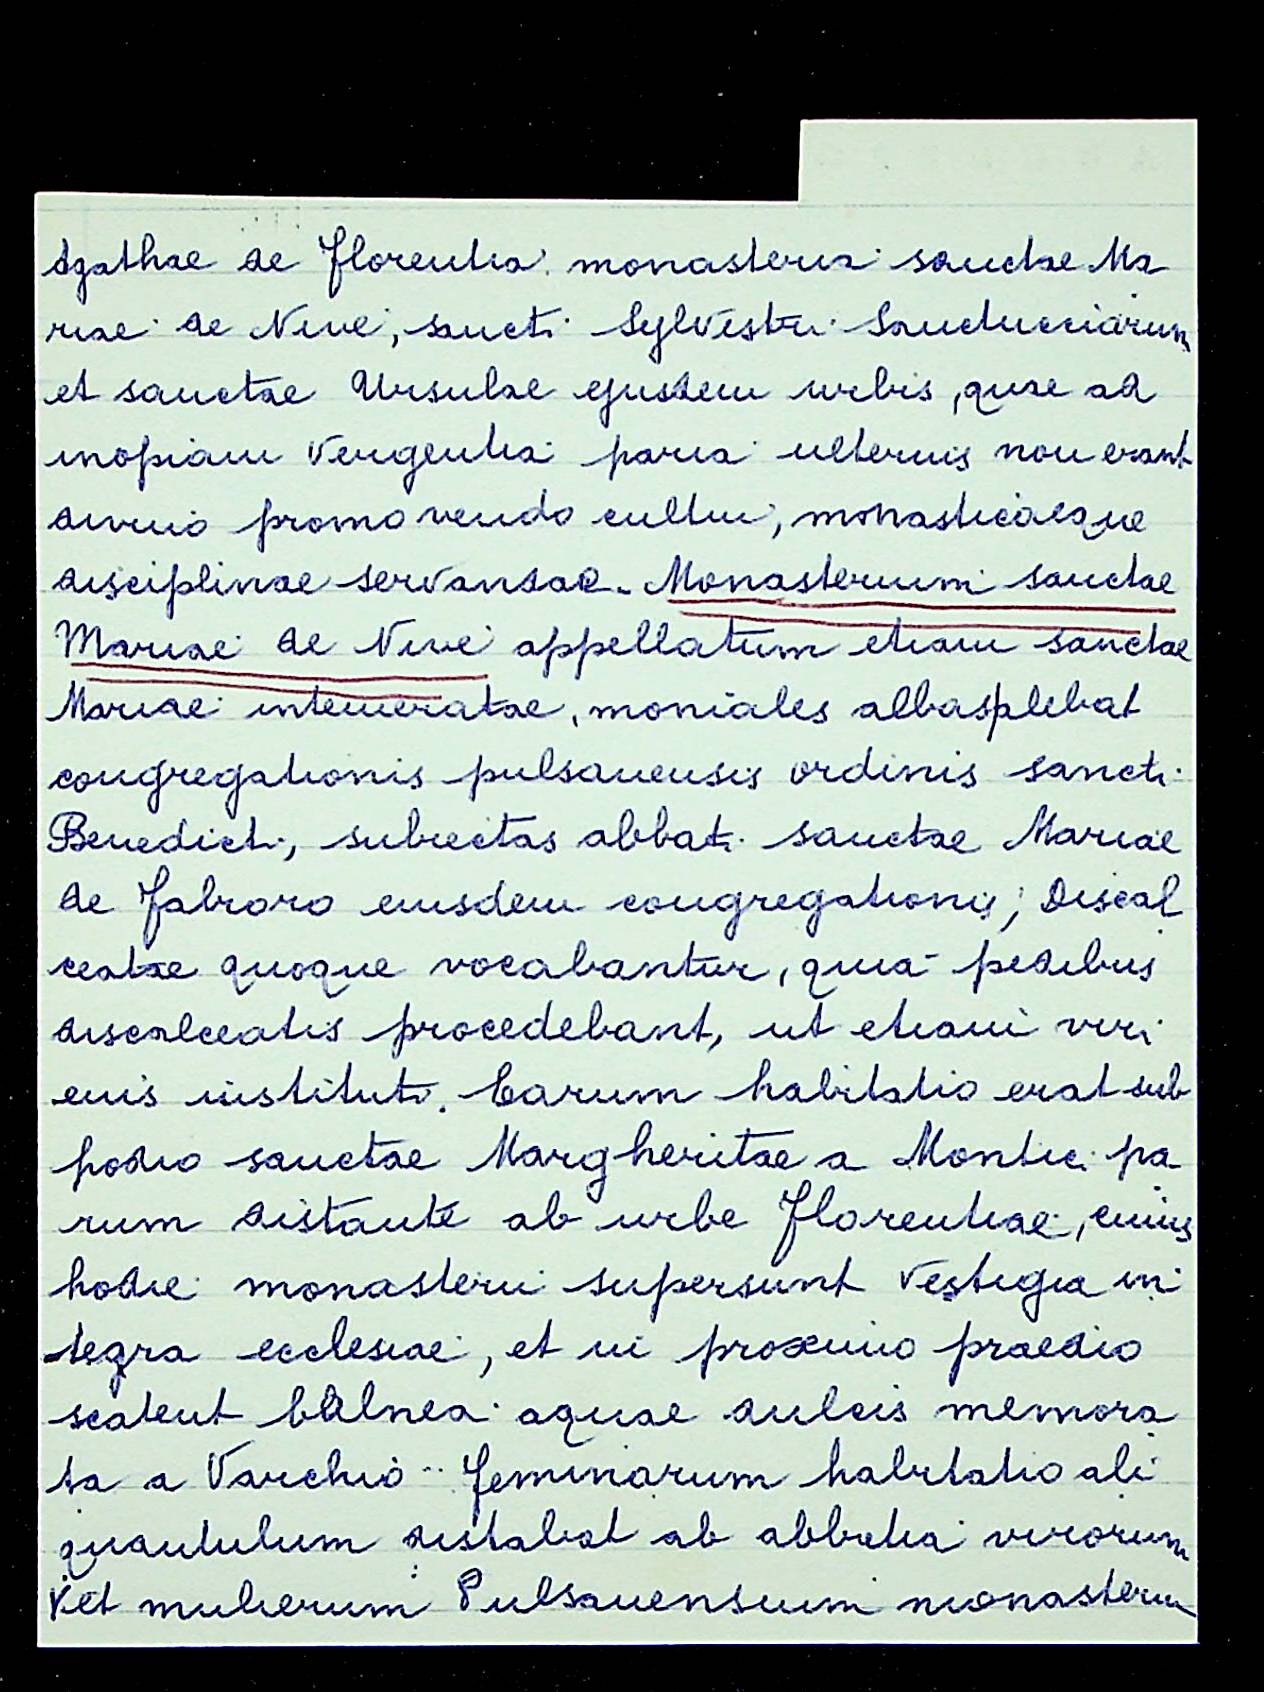 Agathae de Florentia monasteria sanctae Ma
riae de Nive, sancti Sylvestri Sanctucciarum
et sanctae Ursulae ejusdem urbis, quae ad
inopiam vergentia paria ulterius non erant
divino promovendo cultui, monasticaeque
disciplinae servandae. Monasterium sanctae
Mariae de Nive appellatum etiam sanctae
Mariae intemeratae, moniales albas plebat
congregationis pulsanensis ordinis sancti
Benedicti, subiectas abbati sanctae Mariae
de Fabroro eiusdem congregationis; Discal
ceatae quoque vocabantur, quia pedibus
discalceatis procedebant, ut etiam viri
eius instituti. Earum habitatio erat sub
podio sanctae Margheritae a Montici pa
rum distante ab urbe Florentiae, cuius
hodie monasterii supersunt vestigia in
tegra ecclesiae, et in proximo praedio
scatent balnea aquae dulcis memora
ta a Varchio.. Feminarum habitatio ali
quantulum distabat ab abbatia virorum
Vet mulierum Pulsanensium monasterium